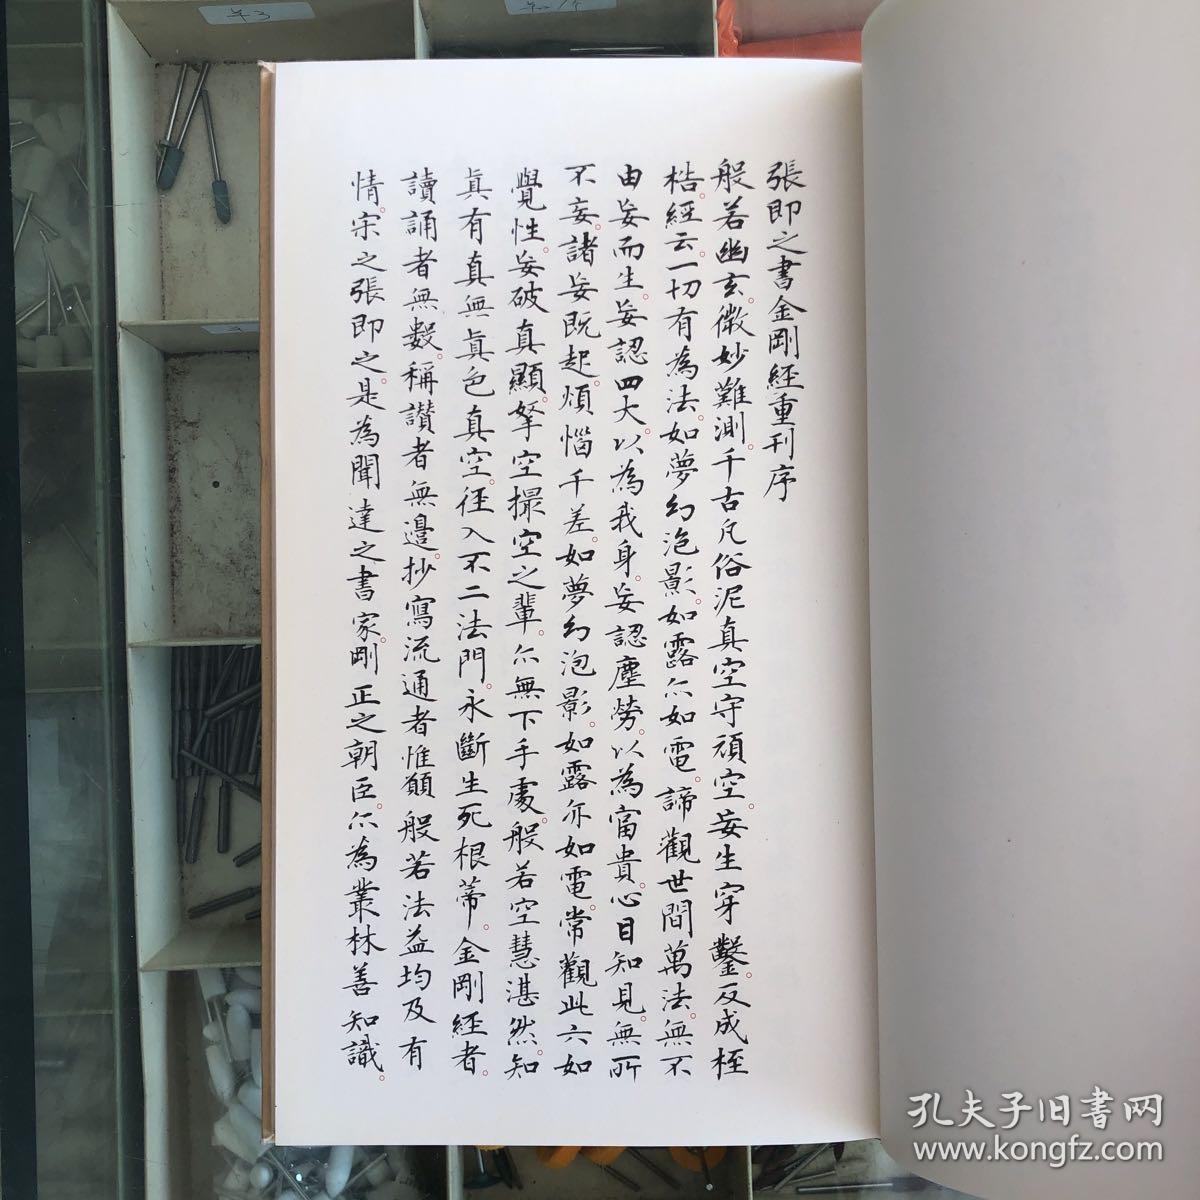 張即之書金剛經重刊序
般若幽玄。微妙難測。千古凡俗泥真空守頑空。妄生穿鑿。反成桎
梏。經云。一切有為法。如夢幻泡影。如露亦如電。諦觀世間萬法。無不
由妄而生。妄認四大。以為我身。妄認塵勞。以為富貴。心目知見。無所
不妄。諸妄既起。煩惱千差。如夢幻泡影。如露亦如電。常觀此六如
覺性。妄破真顯。拏空撮空之輩。亦無下手處。般若空慧湛然。知
真有真無真色真空。徑入不二法門。永斷生死根蒂。金剛經者。
讀誦者無數。稱讚者無邊。抄寫流通者惟願般若法益均及有
情。宋之張即之。是為聞達之書家。剛正之朝臣。亦為叢林善知識。
孔夫子旧書网
www.kongfz.com